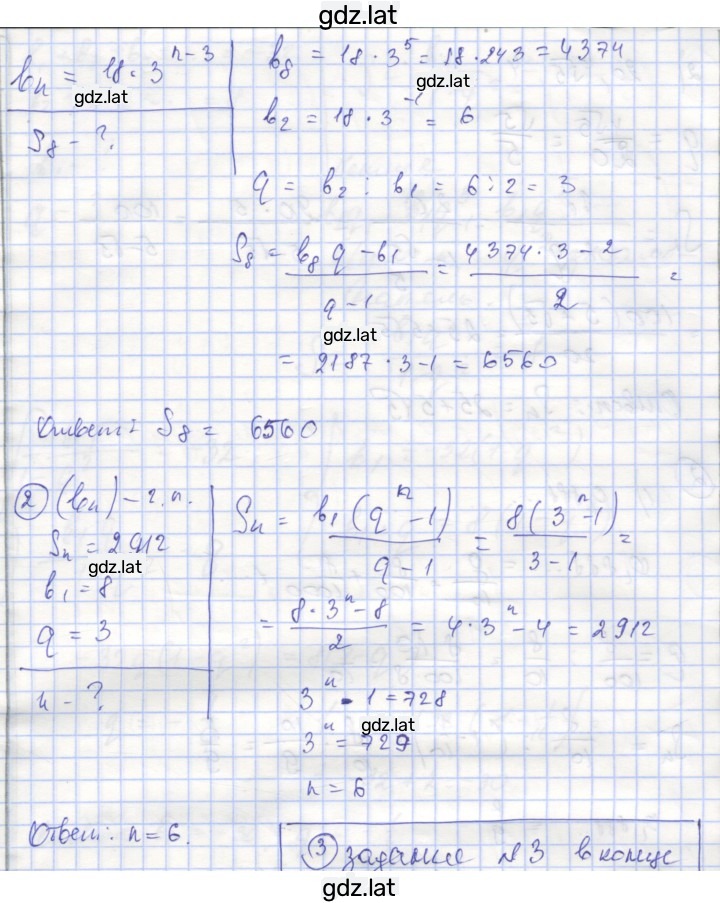 gdz.lat
bₙ = 18 · 3ⁿ⁻³
gdz.lat
S₈ - ?
b₈ = 18 · 3⁵ = 18 · 243 = 4374
gdz.lat
b₂ = 18 · 3⁻¹ = 6
q = b₂ : b₁ = 6 : 2 = 3
S₈ = (b₈ q - b₁)/(q - 1) = (4374 · 3 - 2)/2 =
gdz.lat
= 2187 · 3 - 1 = 6560
Ответ: S₈ = 6560
② (bₙ) - г. п.
Sₙ = 2912
gdz.lat
b₁ = 8
q = 3
n - ?
Sₙ = b₁(qⁿ - 1)/(q - 1) = 8(3ⁿ - 1)/(3 - 1) =
= (8 · 3ⁿ - 8)/2 = 4 · 3ⁿ - 4 = 2912
3ⁿ - 1 = 728
gdz.lat
3ⁿ = 729
n = 6
Ответ: n = 6.
③ задание №3 в конце
gdz.lat